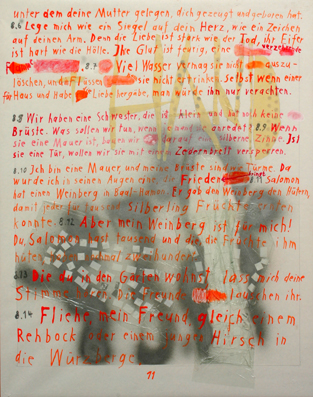 unter dem deine Mutter gelegen, dich gezeugt und geboren hat.
8.6 Lege mich wie ein Siegel auf dein Herz, wie ein Zeichen
auf deinen Arm. Denn die Liebe ist stark wie der Tod, ihr Eifer
ist hart wie die Hölle. Ihr Glut ist feurig, eine
8.7 Viel Wasser vermag sie nicht auszu-
löschen, und Flüsse sie nicht ertrinken. Selbst wenn einer
für Haus und Habe Liebe hergäbe, man würde ihn nur verachten.
8.8 Wir haben eine Schwester, die ist klein und hat noch keine
Brüste. Was sollen wir tun, wenn anredet? 8.9 Wenn
sie eine Mauer ist, bauen wir darauf silberne Zinne. Ist
sie eine Tür, wollen wir sie mit einem Zedernbrett versperren.
8.10 Ich bin eine Mauer und meine Brüste sind wie Türme. Da
wurde ich in seinen Augen eine, die Frieden 8.11 Salomon
hat einen Weinberg in Baal-Hamon. Er gab den Weinberg den Hütern,
damit jeder für tausend Silberling Früchte ernten
konnte. 8.12 Aber mein Weinberg ist für mich!
Du, Salomon hast tausend und die die Früchte ihm
hüten zweihundert.
8.13 Die du in den Gärten wohnst lass mich deine
Stimme hören. Die Freunde lauschen ihr.
8.14 Fliehe, mein Freund, gleich einem
Rehbock oder einem junger Hirsch in
die Würzberge